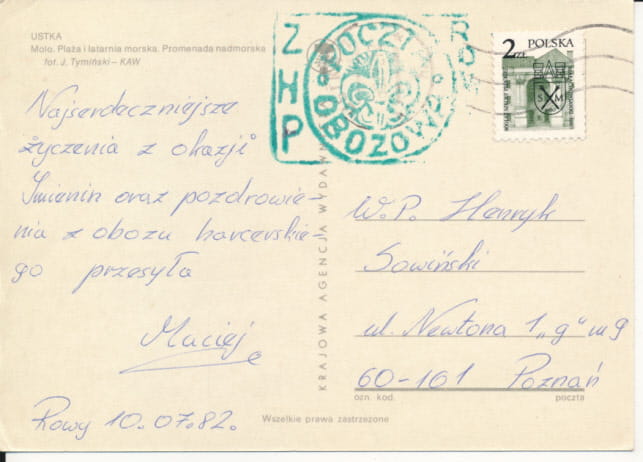 USTKA
Molo. Plaża i latarnia morska. Promenada nadmorska
fot. J. Tymiński – KAW
Z H P
POCZTA
OBOZOWA
ROWY
2 zł POLSKA
S M
Najserdeczniejsze
życzenia z okazji
Imienin oraz pozdrowie-
nia z obozu harcerskie-
go przesyła
Maciej
Rowy 10.07.82.
KRAJOWA AGENCJA WYDAW
W.P. Henryk
Sowiński
ul. Newtona 1 „g" m 9
60-161 Poznań
ozn. kod. poczta
Wszelkie prawa zastrzeżone